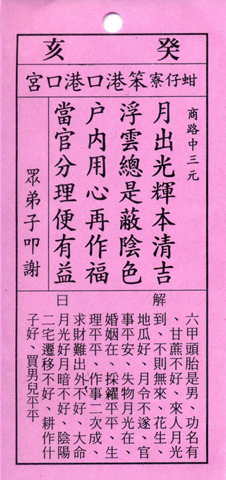 癸亥
蚶仔寮笨港口港口宮
商路中三元
月出光輝本清吉
浮雲總是蔽陰色
户內用心再作福
當官分理便有益
眾弟子叩謝
解曰
六甲頭胎是男、功名有
、甘蔗不好、來人月光
到、不則無來、花生、
地瓜好、月令不遂、官
事平安、失物月光在、
婚姻在、採糴平平、生
理平平、作事二次成、
求財難出外不好、大命
月光好月暗不好、陰陽
二宅遷移不好、耕作什
子好、買男兒平平